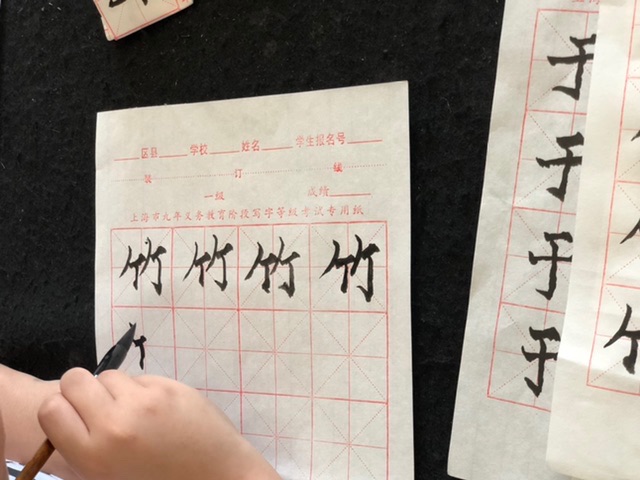 区县 学校 姓名 学生报名号
装 订 线
一级 成绩
上海市九年义务教育阶段写字等级考试专用纸
竹 竹 竹 竹
于
于
于
于